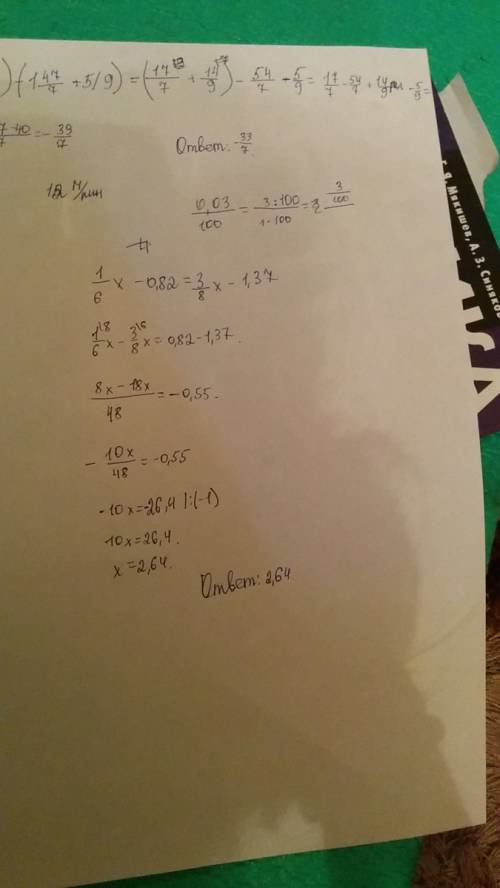 ) - (1 47/7 + 5/9) = (17/7 + 14/9) - 54/7 - 5/9 = 17/7 - 54/7 + 14/9 - 5/9 =
7-40/7 = - 39/7
Ответ: - 33/7
152 м/мин
0,03/100 = 3:100/1·100 = 3/100
4
1/6 x - 0,82 = 3/8 x - 1,37
1/6 x - 3/8 x = 0,82 - 1,37.
8x - 18x/48 = -0,55.
- 10x/48 = -0,55
-10x = -26,4 |:(-1)
10x = 26,4.
x = 2,64.
Ответ: 2,64.
Г. Я. Мякишев, А. З. Синяков